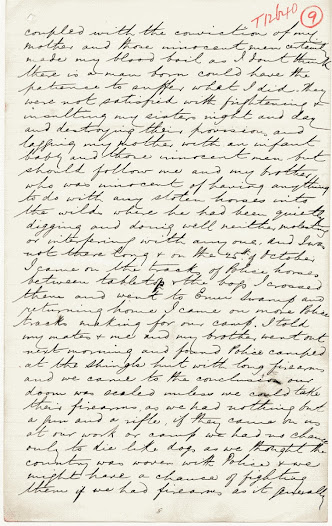 T12640 9
coupled with the conviction of my
mother and those innocent men certainly
made my blood boil as I don't think
there is a man born could have the
patience to suffer what I did. They
were not satisfied with frightening &
insulting my sisters night and day
and destroying their provisions and
lagging my mother with an infant
baby and those innocent men but
should follow me and my brother
who was innocent of having anything
to do with any stolen horses into
the wilds where he had been quietly
digging and doing well neither molesting
or interfering with anyone. and I was
not there long & on the 25th of October
I came on the track of Police horses
between tabletop & the bogs I crossed
there and went to Emu Swamp and
returning home I came on more Police
tracks making for our camp. I told
my mates & me and my brother went out
next morning and found Police camped
at the shingle hut with long firearms
and we came to the conclusion our
doom was sealed unless we could take
their firearms, as we had nothing but
a gun and a rifle, if they came on us
at our work or camp we had no chance
only to die like dogs as we thought the
country was woven with Police & we
might have a chance of fighting
them if we had firearms as it generally